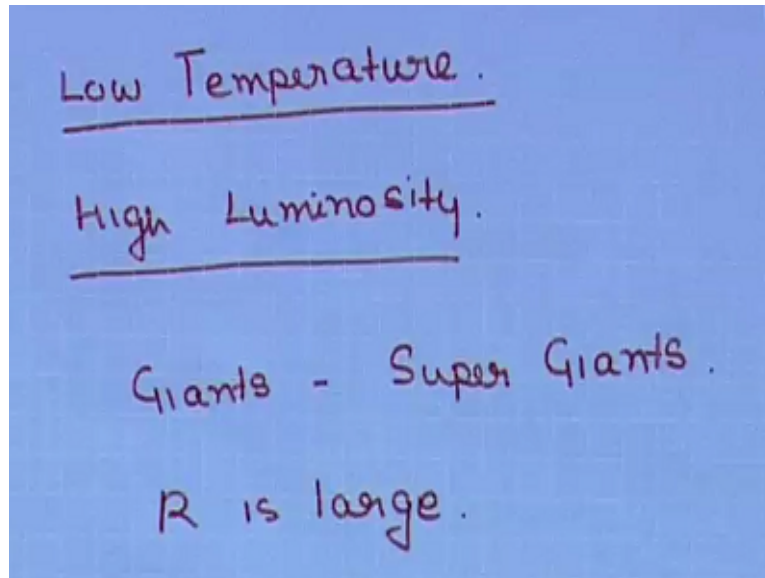 Low Temperature.
High Luminosity.
Giants - Super Giants.
R is large.